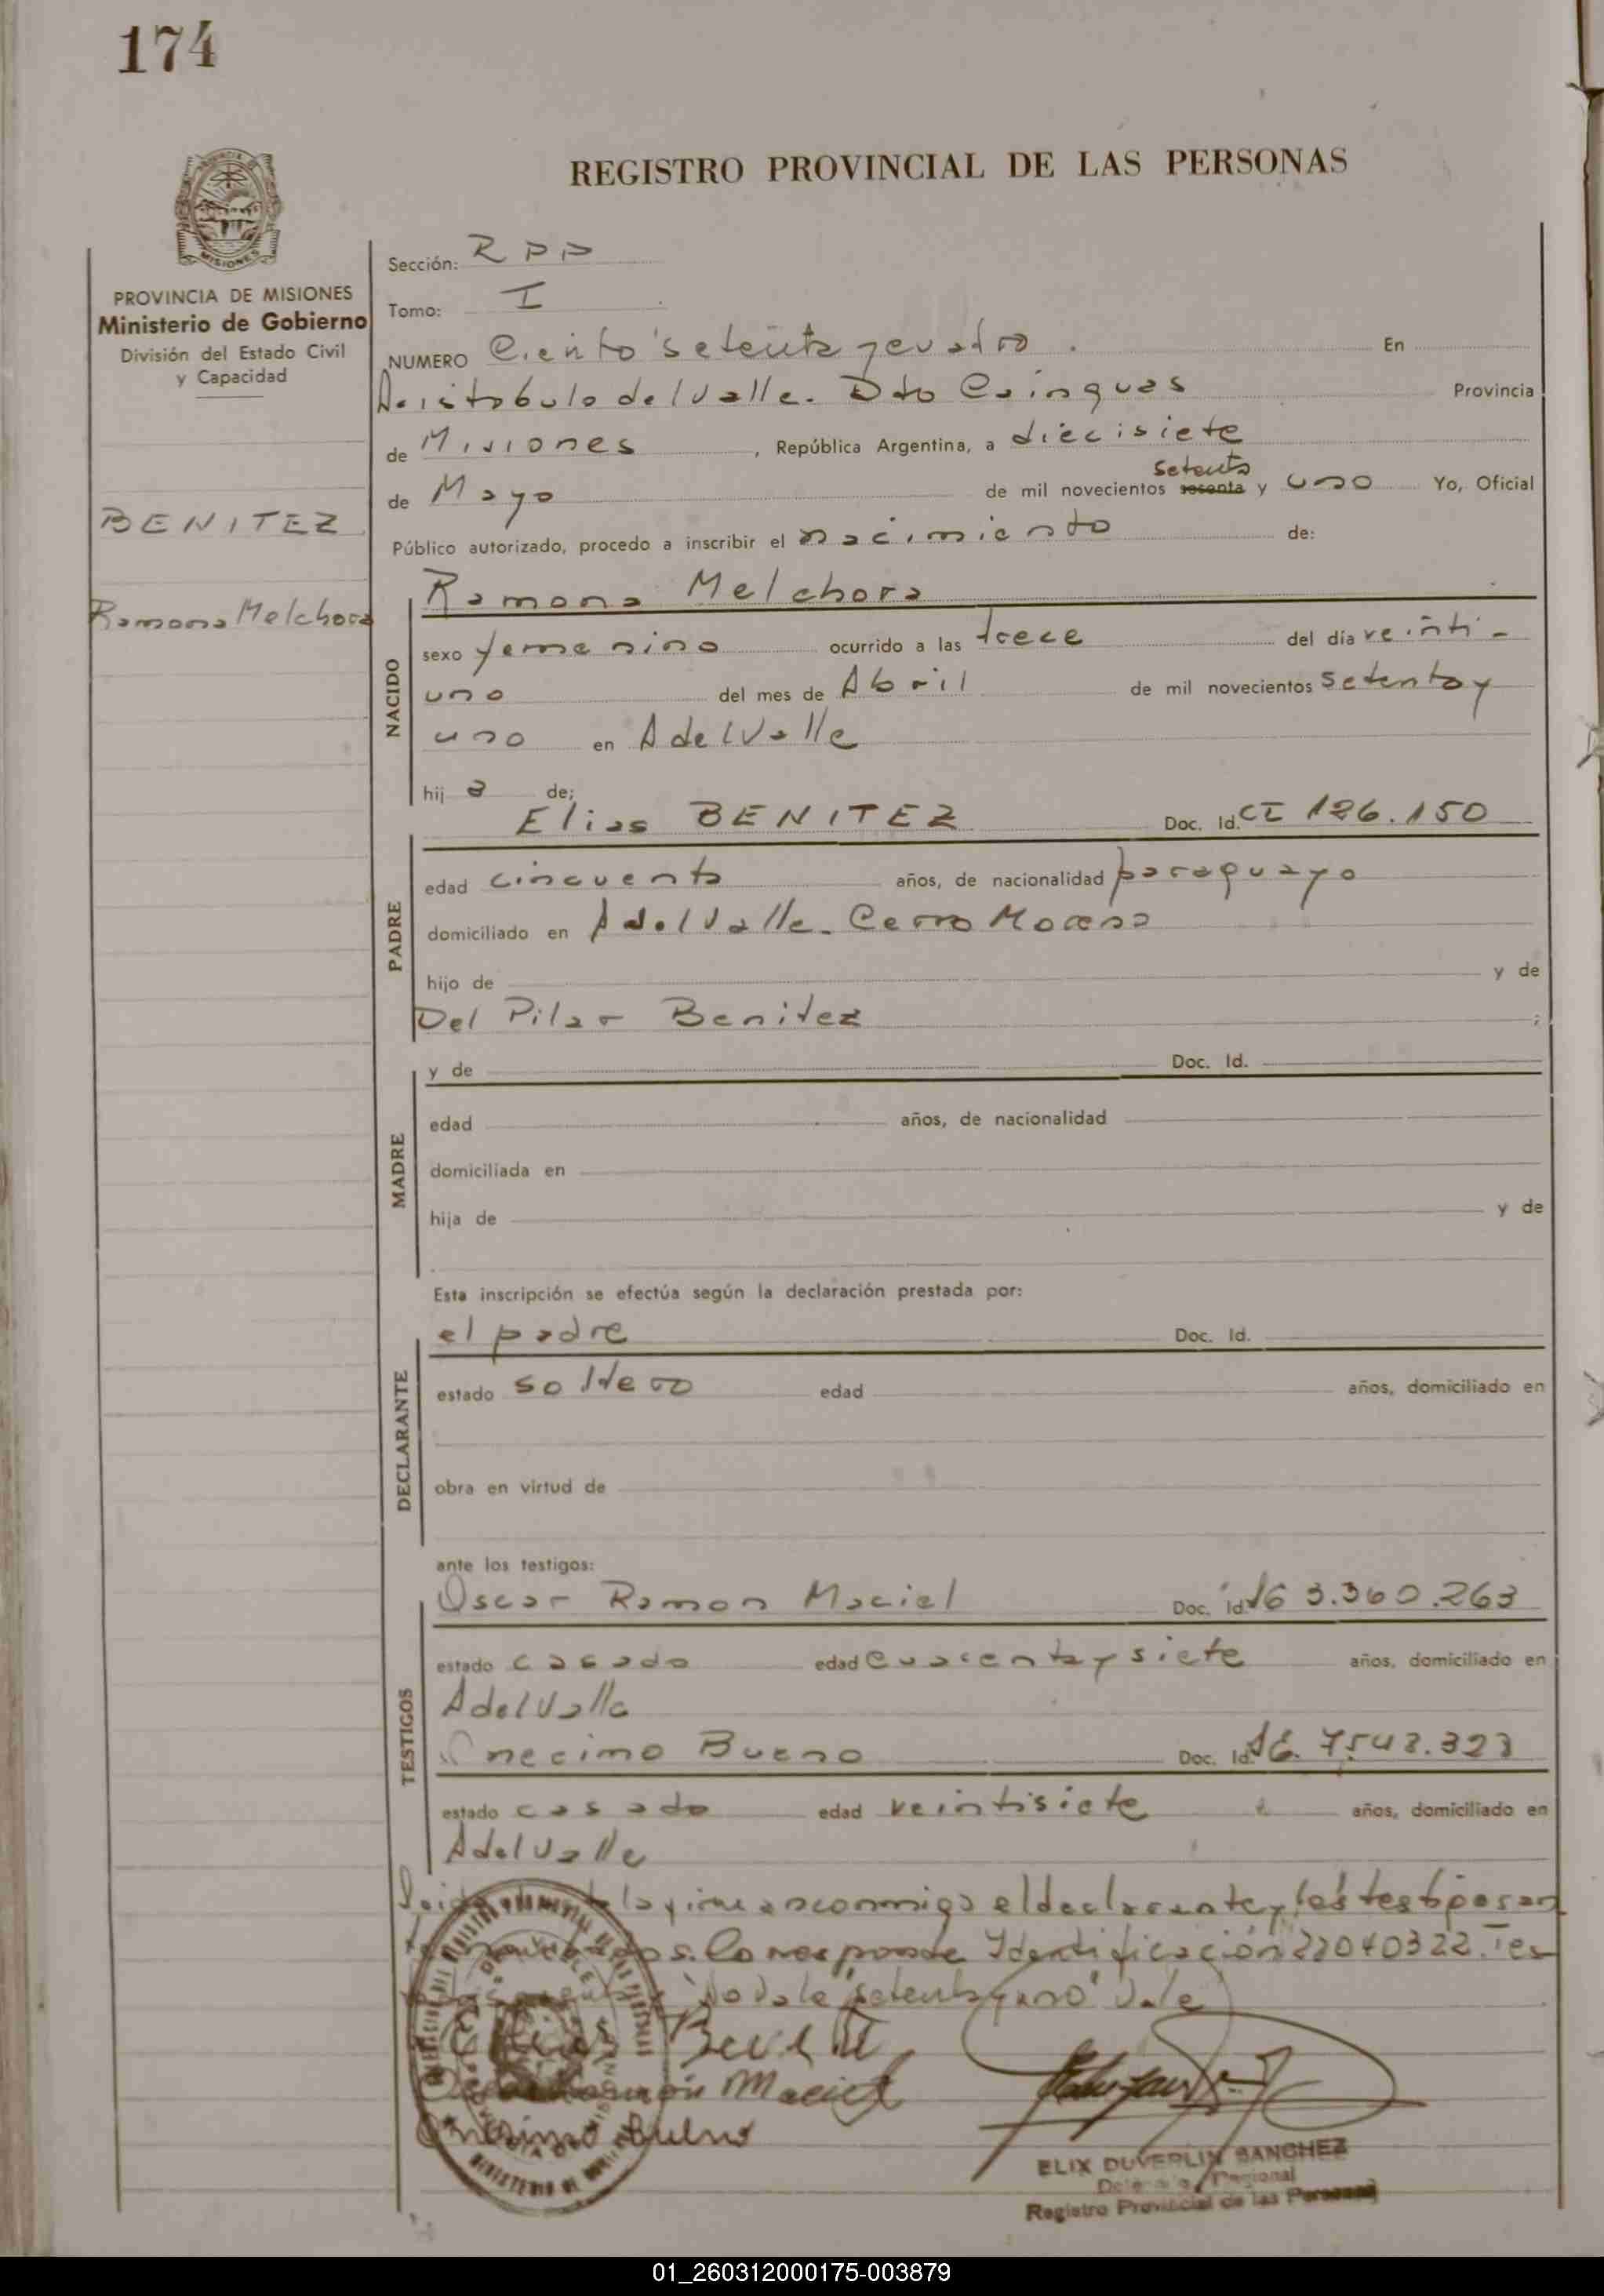 174
REGISTRO PROVINCIAL DE LAS PERSONAS
PROVINCIA DE MISIONES
Ministerio de Gobierno
División del Estado Civil
y Capacidad
BENITEZ
Ramona Melchora
Sección: R P P
Tomo: I
NUMERO Ciento setenta y cuatro. En
Aristobulo del Valle. Dto Cainguas Provincia
de Misiones, República Argentina, a diecisiete
setenta
de Mayo de mil novecientos sesenta y uno Yo, Oficial
Público autorizado, procedo a inscribir el nacimiento de:
NACIDO
Ramona Melchora
sexo femenino ocurrido a las trece del día veinti-
uno del mes de Abril de mil novecientos setenta y
uno en A del Valle
hij a de;
PADRE
Elias BENITEZ Doc. Id. CI 126.150
edad cincuenta años, de nacionalidad paraguayo
domiciliado en A del Valle. Cerro Moreno
hijo de y de
Del Pilar Benitez ;
MADRE
y de Doc. Id.
edad años, de nacionalidad
domiciliada en
hija de y de
Esta inscripción se efectúa según la declaración prestada por:
DECLARANTE
el padre Doc. Id.
estado soltero edad años, domiciliado en
obra en virtud de
ante los testigos:
TESTIGOS
Oscar Ramon Maciel Doc. Id. 3.360.263
estado casado edad cuarenta y siete años, domiciliado en
A del Valle
Onecimo Bueno Doc. Id. 7.543.323
estado casado edad veintisiete años, domiciliado en
A del Valle
la firman conmigo el declarante y los testigos
Corresponde Identificación 22040322.
"setenta y uno" Vale
Elias Benitez
Ramón Maciel
Onesimo Bueno
ELIX DUVERLIN SANCHEZ
Regional
Registro Provincial de las Personas
01_260312000175-003879